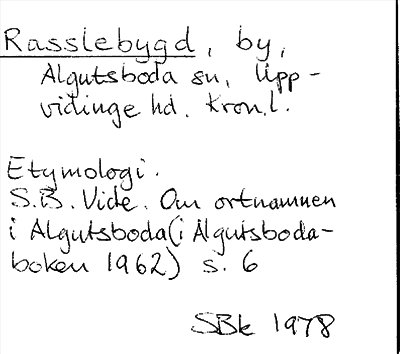 Rasslebygd, by,
Algutsboda sn, Upp-
vidinge hd. Kron.l.
Etymologi.
S.B. Vide. Om ortnamnen
i Algutsboda (i Algutsboda-
boken 1962) s. 6
SBk 1978